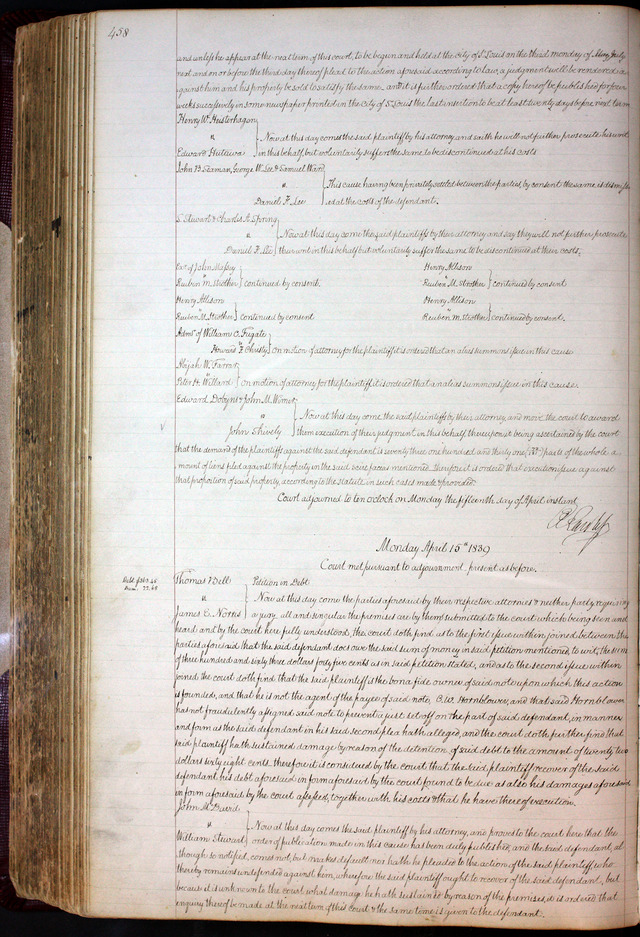 458
and unless he appear at the next term of this court, to be begun and held at the city of St Louis on the third monday of July
next and on or before the third day thereof plead to the action aforesaid according to law, a judgment will be rendered a
gainst him and his property be sold to satisfy the same. and it is further ordered that a copy hereof be published for four
weeks successively in some newspaper printed in the City of St Louis the last insertion to be at least twenty days before next term
Henry W. Husterhagon
vs
Now at this day comes the said plaintiff by his attorney and saith he will not further prosecute his writ
Edward Hutawa
in this behalf, but voluntarily suffers the same to be discontinued at his costs
John B Seaman, George W. Lee & Samuel Ward
vs
This cause having been privately settled between the parties, by consent the same is dismiss
Daniel F. Lee
ed at the costs of the defendant.
S. Stewart & Charles A. Spring
vs
Now at this day come the said plaintiffs by their attorney and say they will not further prosecute
Daniel F. Lee
their writ in this behalf but voluntarily suffer the same to be discontinued at their costs.
Exr of John Massey
vs
Reuben M. Strother
continued by consent.
Henry Allison
vs
Reuben M. Strother
continued by consent
Henry Allison
vs
Reuben M. Strother
continued by consent
Henry Allison
vs
Reuben M. Strother
continued by consent.
Admr of William C. Fugate
vs
Howard F Christy
on motion of attorney for the plaintiff it is ordered that an alias summons issue in this cause
Abijah W. Farrar
vs
Peter H. Willard
on motion of attorney for the plaintiff it is ordered that an alias summons issue in this cause.
Edward Dobyns & John M. Wimer
vs
Now at this day come the said plaintiffs by their attorney and move the court to award
John Shively
them execution of their judgment in this behalf, thereupon it being ascertained by the court
that the demand of the plaintiffs against the said defendant is seventy three one hundred and thirty one parts of the whole a
mount of liens filed against the property in the said scire facias mentioned. Therefore it is ordered that execution issue against
that proportion of said property, according to the statute in such cases made & provided.
Court adjourned to ten o'clock on Monday the fifteenth day of April instant
Monday April 15th 1839
Court met pursuant to adjournment, present as before.
Debt $363.45
Dam. 22.68
Thomas Dell
Petition in Debt
vs
Now at this day come the parties aforesaid by their respective attornies & neither party requiring
James C. Norris
a jury, all and singular the premises are by them submitted to the court which being seen and
heard and by the court here fully understood, the court doth find as to the first issue within joined between the
parties aforesaid that the said defendant does owe the said sum of money in said petition mentioned to wit, the sum
of three hundred and sixty three dollars forty five cents as in said petition stated, and as to the second issue within
joined the court doth find that the said plaintiff is the bona fide owner of said note upon which this action
is founded, and that he is not the agent of the payee of said note, C. W. Hornblower, and that said Hornblower
has not fraudulently assigned said note to prevent a just set off on the part of said defendant, in manner
and form as the said defendant in his said second plea hath alleged, and the court doth further find that
said plaintiff hath sustained damage by reason of the detention of said debt to the amount of twenty two
dollars sixty eight cents. therefore it is considered by the court that the said plaintiff recover of the said
defendant his debt aforesaid in form aforesaid by the court found to be due as also his damages aforesaid
in form aforesaid by the court assessed, together with his costs & that he have thereof execution.
John M.
vs
Now at this day comes the said plaintiff by his attorney, and proves to the court here that the
William Stewart
order of publication made in this cause has been duly published, and the said defendant, al
though so notified, comes not, but makes default nor hath he pleaded to the action of the said plaintiff who
thereby remains undefended against him, wherefore the said plaintiff ought to recover of the said defendant, but
because it is unknown to the court what damage he hath sustained by reason of the premises, it is ordered that
enquiry thereof be made at the next term of this Court & the same time is given to the defendant.